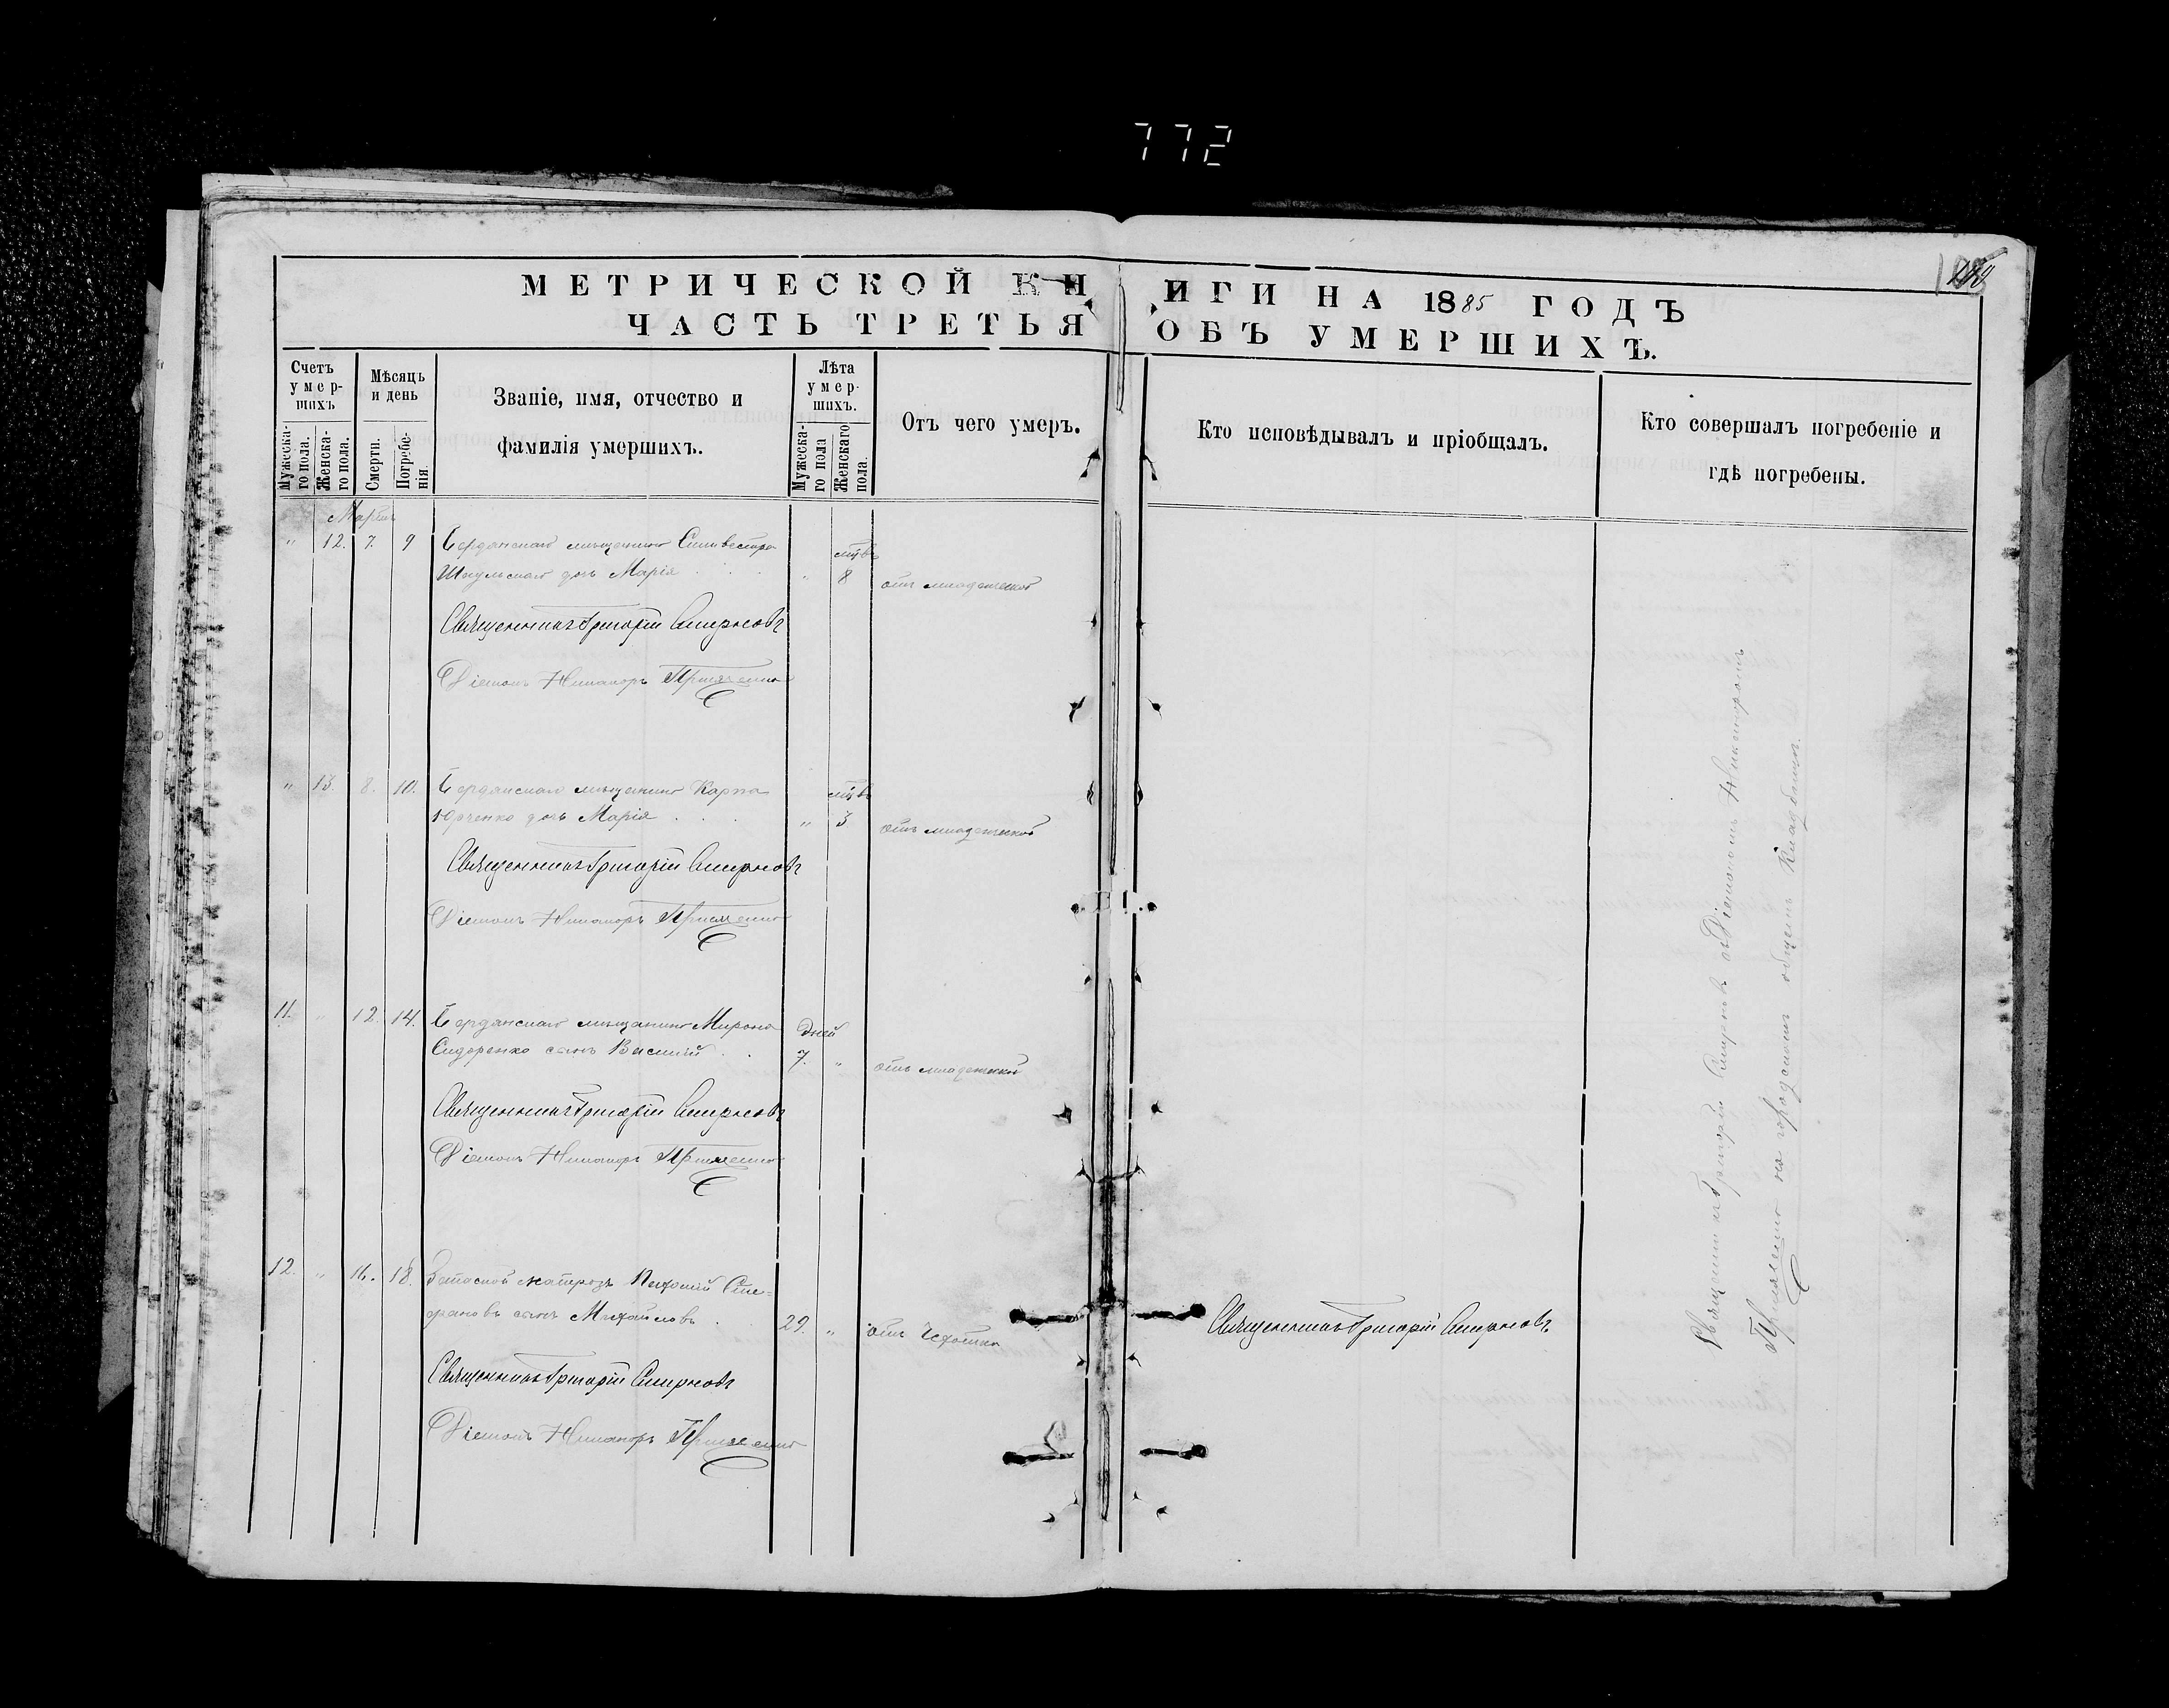 772
МЕТРИЧЕСКОЙ КНИГИ НА 1885 ГОДЪ
ЧАСТЬ ТРЕТЬЯ ОБЪ УМЕРШИХЪ.
Счетъ умер-шихъ
Мужеска-го пола.
Женска-го пола.
Мѣсяцъ и день
Смерти.
Погребе-нія.
Званіе, имя, отчество и
фамилія умершихъ.
Лѣта умер-шихъ.
Мужеска-го пола
Женскаго пола.
Отъ чего умеръ.
Кто исповѣдывалъ и пріобщалъ.
Кто совершалъ погребеніе и
гдѣ погребены.
Мартъ
" 12. 7. 9 Бердянскаго мѣщанина Сильвестра мцъ
дочь Марія " 8 отъ младенческой
Священникъ Григорій Смирновъ
Діаконъ Никаноръ
" 13. 8. 10. Бердянскаго мѣщанина Карпа мцъ
Юрченко дочь Марія " 3 отъ младенческой
Священникъ Григорій Смирновъ
Діаконъ Никаноръ
11. " 12. 14. Бердянскаго мѣщанина Мирона дней
Сидоренко сынъ Василій 7. " отъ младенческой
Священникъ Григорій Смирновъ
Діаконъ Никаноръ
12. " 16. 18. Запасной матрозъ Сте-
фановъ сынъ Михайловъ 29. " отъ Чахотки
Священникъ Григорій Смирновъ
Діаконъ Никаноръ
Священникъ Григорій Смирновъ
Священникъ Григорій Смирновъ съ Діакономъ Никаноромъ
на городскомъ общемъ Кладбищѣ.